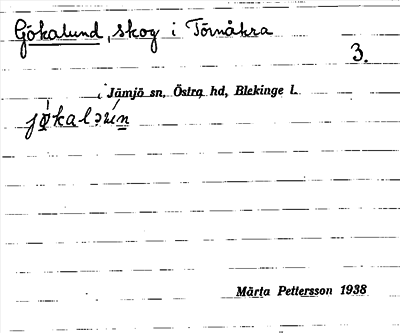 Gökalund, skog i Törnåkra
3.
i Jämjö sn, Östra hd, Blekinge l.
Märta Pettersson 1938